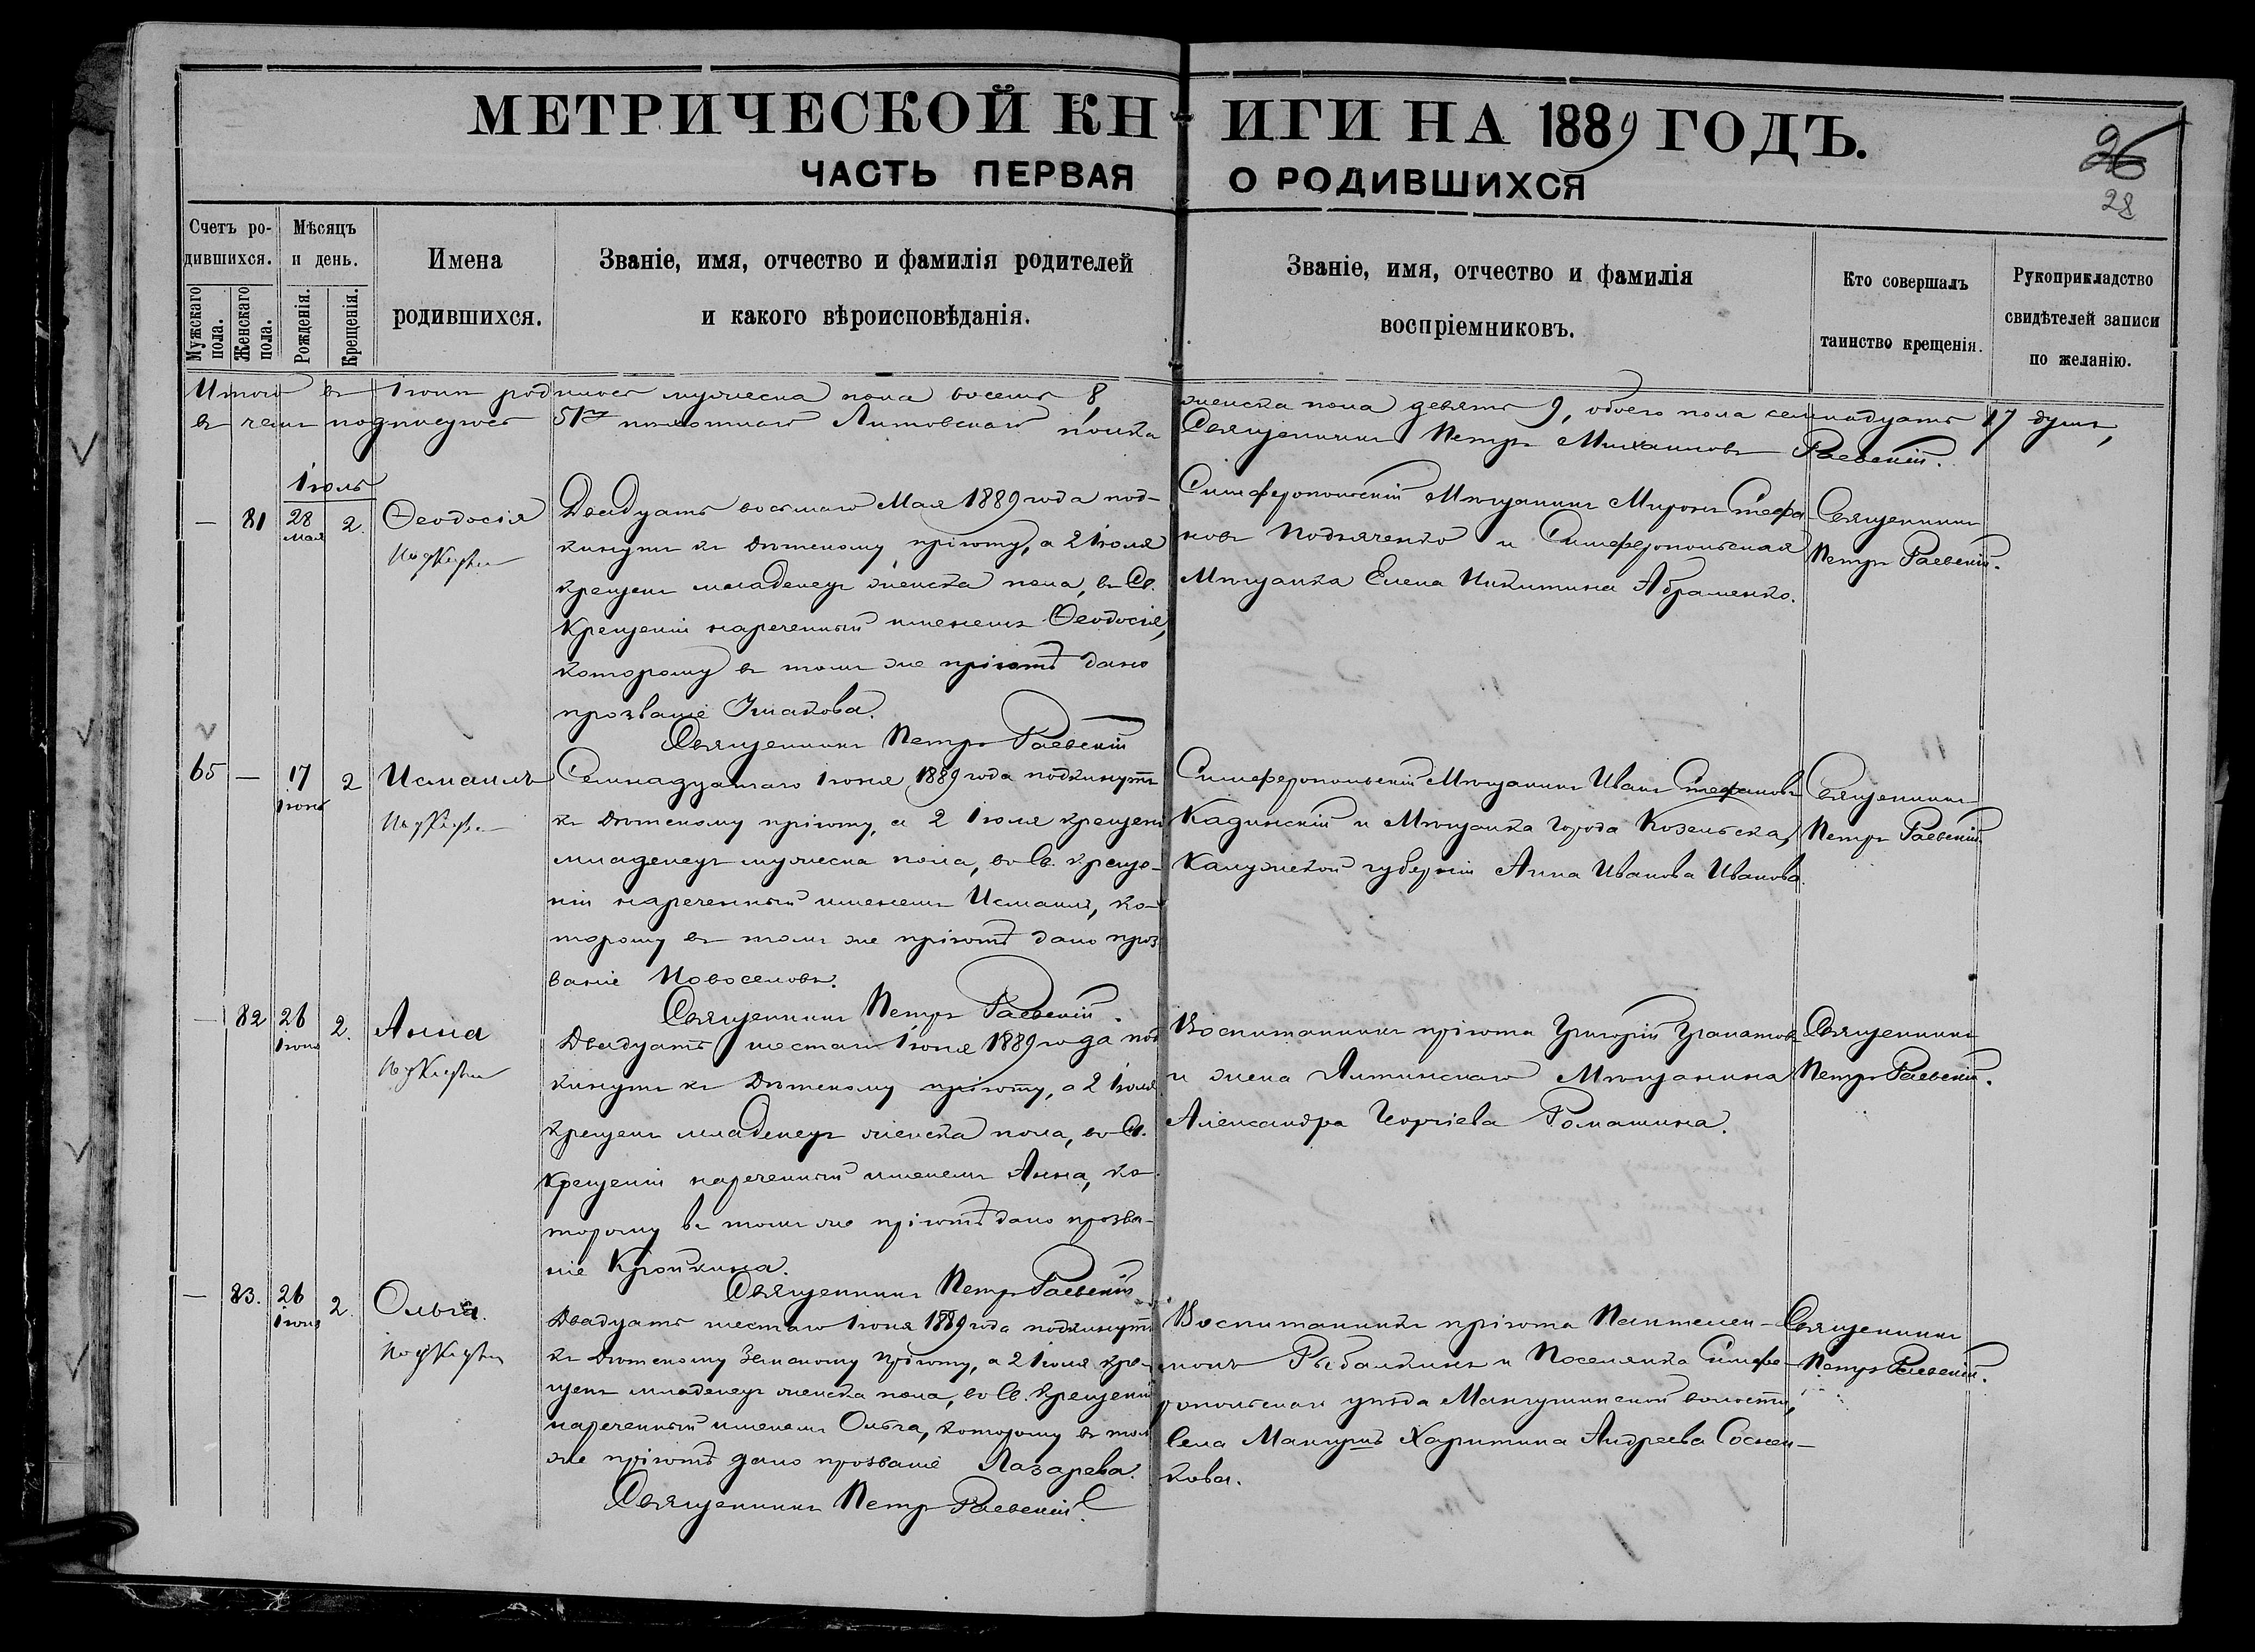 МЕТРИЧЕСКОЙ КНИГИ НА 1889 ГОДЪ.
ЧАСТЬ ПЕРВАЯ О РОДИВШИХСЯ
26
28
Счетъ родившихся.
Мужскаго пола.
Женскаго пола.
Мѣсяцъ и день.
Рожденія.
Крещенія.
Имена родившихся.
Званіе, имя, отчество и фамилія родителей
и какого вѣроисповѣданія.
Званіе, имя, отчество и фамилія
воспріемниковъ.
Кто совершалъ
таинство крещенія.
Рукоприкладство
свидѣтелей записи
по желанію.
Итого въ Іюнѣ родилось мужеска пола восемь 8, женска пола девять 9, обоего пола семнадцать 17 душъ,
въ чемъ подписуюсь 51го пѣхотнаго Литовскаго полка Священникъ Петръ Михаиловъ Раевскій.
Іюль
— 81 28 Мая 2. Ѳеодосія
Подкидыш
Двадцать восьмаго Мая 1889 года под-
кинутъ къ Дѣтскому пріюту, а 2 Іюля
крещенъ младенецъ женска пола, въ Св.
Крещеніи нареченный именемъ Ѳеодосія,
которому въ томъ же пріютѣ дано
прозваніе
Священникъ Петръ Раевскій
Симферопольскій Мѣщанинъ Миронъ Стефа-
новъ и Симферопольская
Мѣщанка Елена Никитина Абраменко.
Священникъ
Петръ Раевскій.
65 — 17 Іюня 2 Исмаилъ
Подкидыш
Семнадцатаго Іюня 1889 года подкинутъ
къ Дѣтскому пріюту, а 2 Іюля крещенъ
младенецъ мужеска пола, во Св. Креще-
ніи нареченный именемъ Исмаилъ, ко-
торому въ томъ же пріютѣ дано проз-
ваніе Новоселовъ.
Священникъ Петръ Раевскій.
Симферопольскій Мѣщанинъ Иванъ Стефановъ
Кадинскій и Мѣщанка города Козельска,
Калужской губерніи Анна Иванова Иванова.
Священникъ
Петръ Раевскій.
— 82 26 Іюня 2. Анна
Подкидыш
Двадцать шестаго Іюня 1889 года под-
кинутъ къ Дѣтскому пріюту, а 2 Іюля
крещенъ младенецъ женска пола, во Св.
Крещеніи нареченный именемъ Анна, ко-
торому въ томъ же пріютѣ дано прозва-
ніе
Священникъ Петръ Раевскій
Воспитанникъ пріюта Григорій Гранатовъ
и жена Ялтинскаго Мѣщанина
Александра Георгіева Ромашина.
Священникъ
Петръ Раевскій.
— 83. 26 Іюня 2. Ольга.
Подкидыш
Двадцать шестаго Іюня 1889 года подкинутъ
къ Дѣтскому Земскому Пріюту, а 2 Іюля кре-
щенъ младенецъ женска пола, во Св. Крещеніи
нареченный именемъ Ольга, которому въ томъ
же пріютѣ дано прозваніе Лазарева.
Священникъ Петръ Раевскій.
Воспитанникъ пріюта Пантелей-
монъ Рыбалкинъ и Поселянка Симфе-
ропольскаго уѣзда Мангушинской волости,
села Мангушъ Харитина Андреева
Священникъ
Петръ Раевскій.